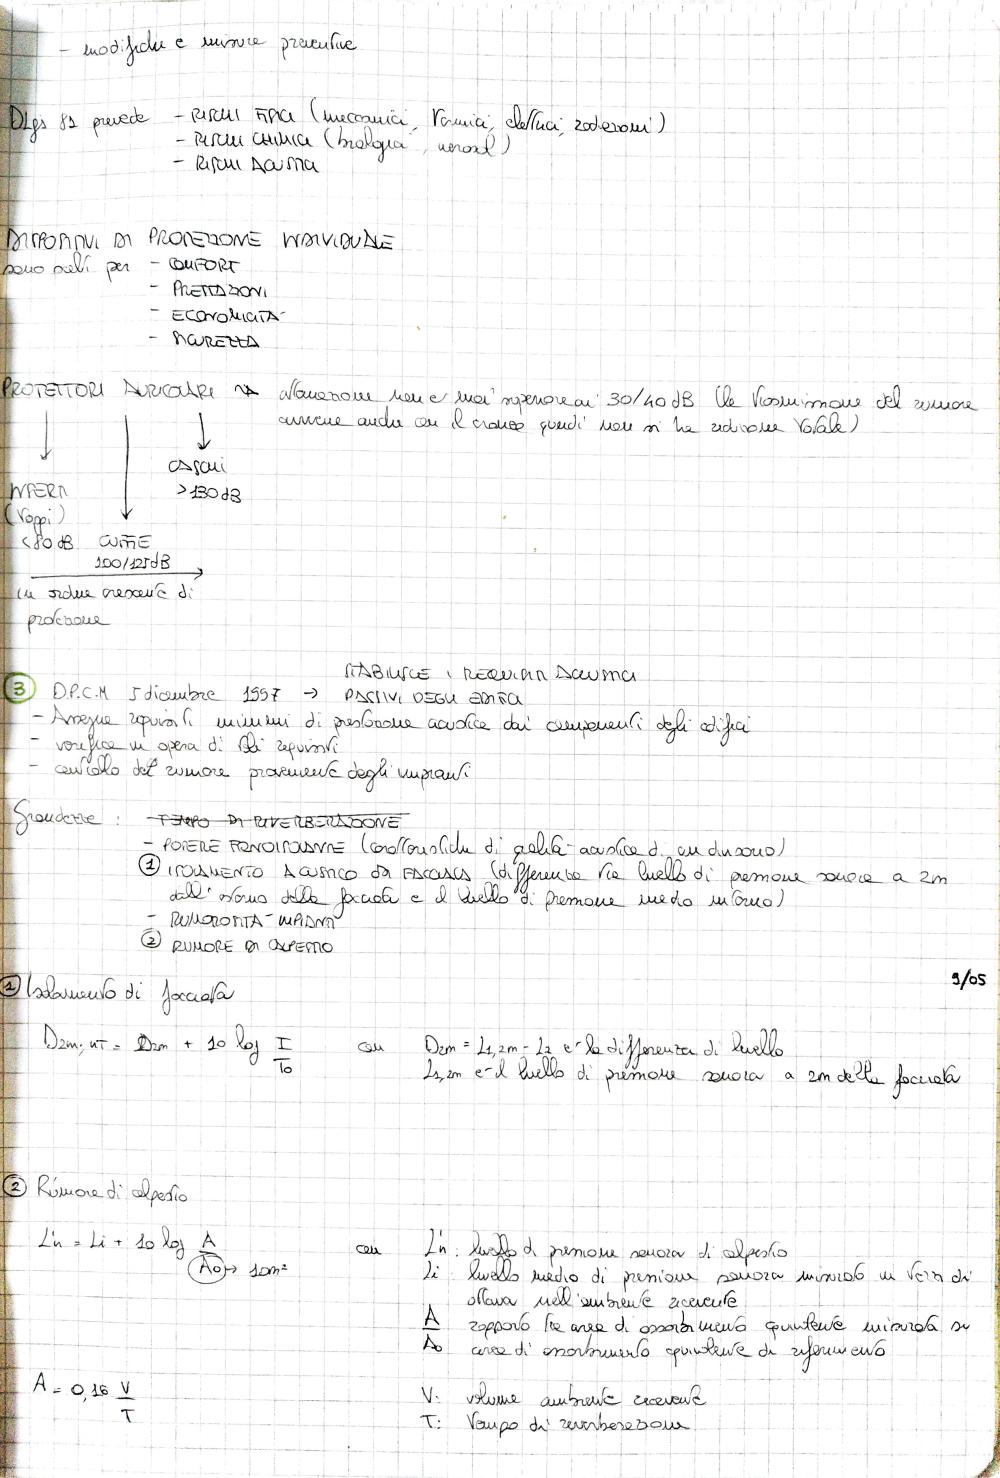 - modifiche e misure preventive
DLgs 81 prevede - RISCHI FISICI (meccanici, termici, elettrici, radiazioni)
- RISCHI CHIMICI (biologici, aerosol)
- RISCHI ACUSTICI
DISPOSITIVI DI PROTEZIONE INDIVIDUALE
sono scelti per - COMFORT
- PRESTAZIONI
- ECONOMICITÀ
- SICUREZZA
PROTETTORI AURICOLARI → attenuazione non è mai superiore ai 30/40 dB (la trasmissione del rumore
avviene anche con il cranio quindi non si ha riduzione totale)
CASCHI
>130 dB
INSERTI
(tappi)
<80 dB CUFFIE
100/125 dB
in ordine crescente di
protezione
STABILISCE I REQUISITI ACUSTICI
3 D.P.C.M 5 dicembre 1997 → PASSIVI DEGLI EDIFICI
- Assegna requisiti minimi di prestazione acustica dai componenti degli edifici
- verifica in opera di tali requisiti
- controllo del rumore proveniente degli impianti
Grandezze : - TEMPO DI RIVERBERAZIONE
- POTERE FONOISOLANTE (caratteristiche di qualità acustica di un divisorio)
1 ISOLAMENTO ACUSTICO DA FACCIATA (differenza tra livello di pressione sonora a 2m
dall'esterno della facciata e il livello di pressione medio interno)
- RUMOROSITÀ IMPIANTI
2 RUMORE DI CALPESTIO
9/05
1 Isolamento di facciata
D2m,nT = D2m + 10 log T/To con D2m = L1,2m - L2 è la differenza di livello
L1,2m è il livello di pressione sonora a 2m della facciata
2 Rumore di calpestio
L'n = Li + 10 log A/Ao → 10m² con L'n : livello di pressione sonora di calpestio
Li : livello medio di pressione sonora misurato in terzi di
ottava nell'ambiente ricevente
A/Ao rapporto tra area di assorbimento equivalente misurata su
area di assorbimento equivalente di riferimento
A = 0,16 V/T V: volume ambiente ricevente
T: tempo di riverberazione